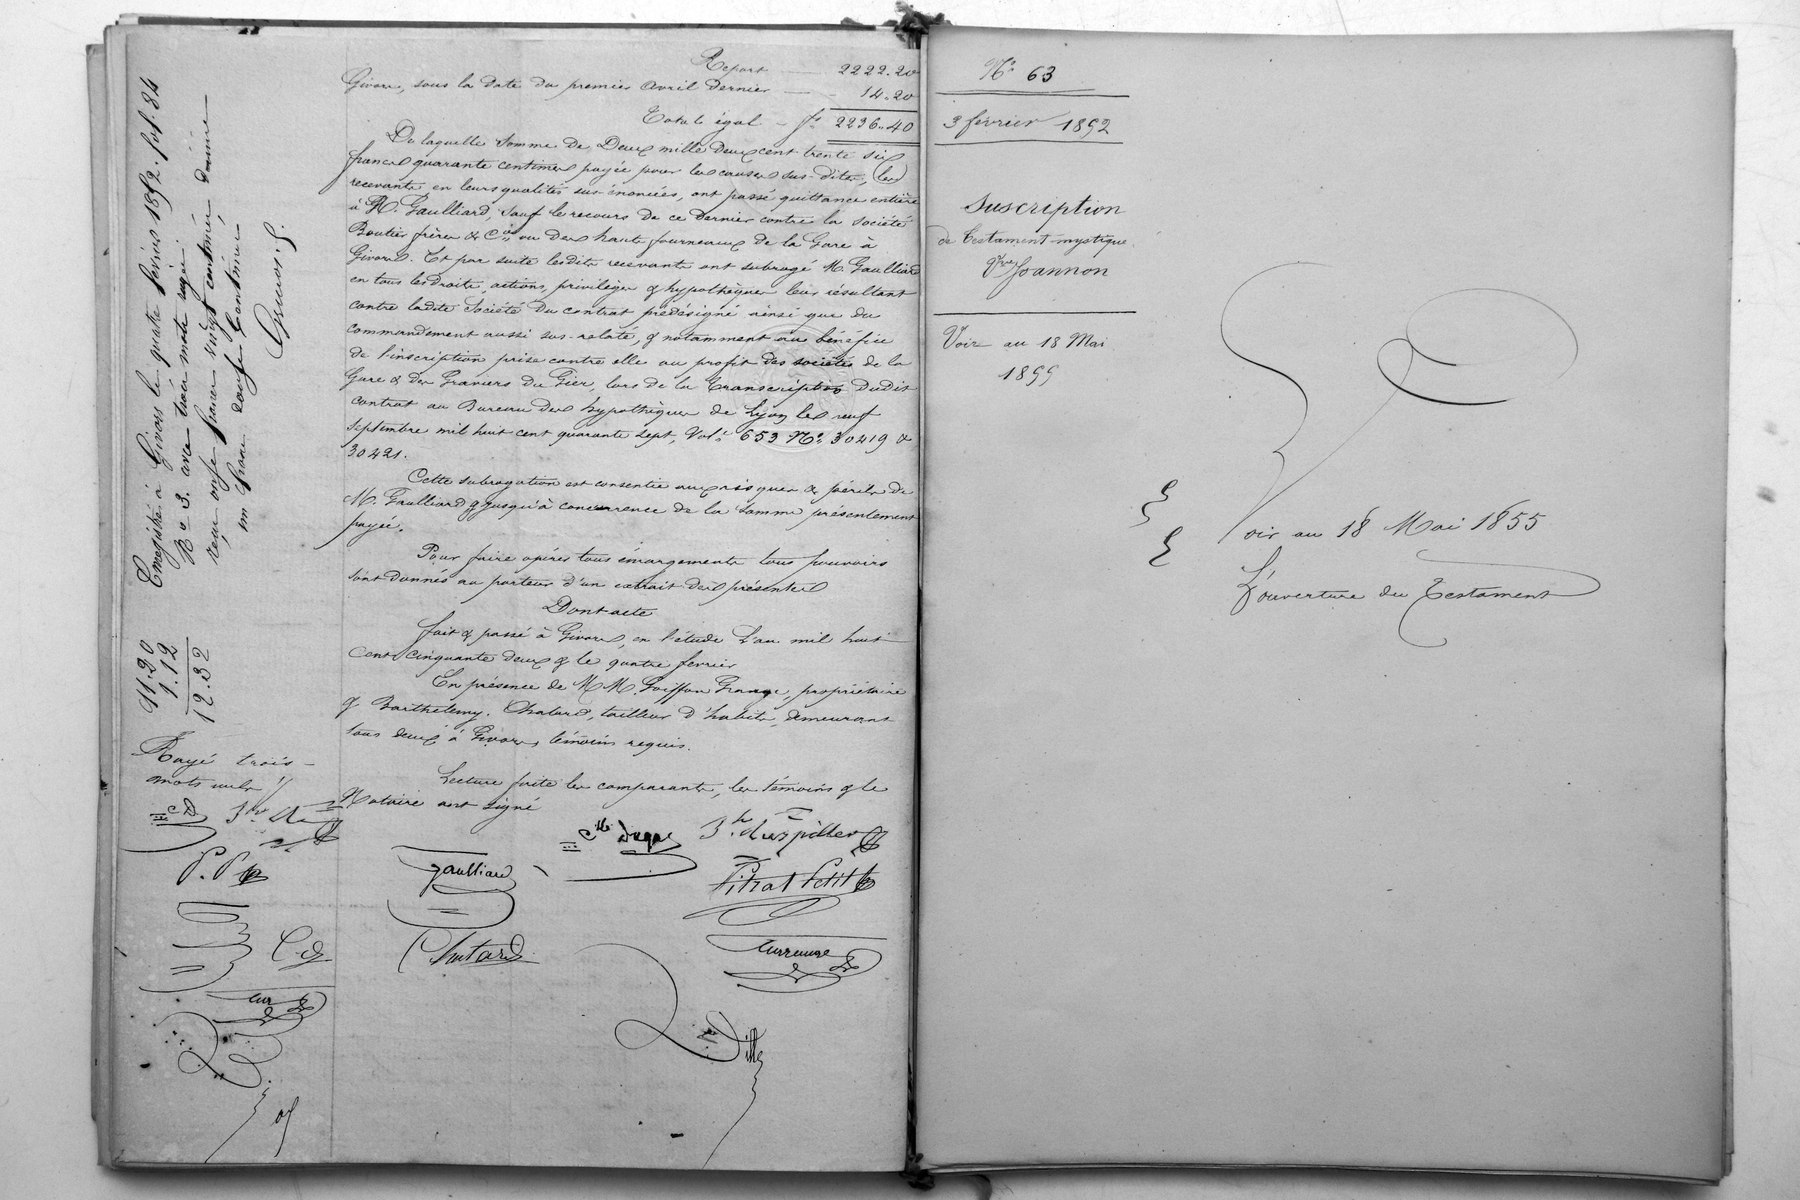 Report — 2222.20
Givors, sous la date du premier Avril dernier — 14.20
Total égal — fs 2236.40
De laquelle somme de Deux mille deux cent trente six
francs quarante centimes payée pour les causes sus-dites, les
recevants en leurs qualités sus-énoncées, ont passé quittance entière
à M. Gaulliard, sauf le recours de ce dernier contre la société
Boutier frères & Cie, ou des hauts fourneaux de la Gare à
Givors. Et par suite lesdits recevants ont subrogé M. Gaulliard
en tous les droits, actions, privilèges & hypothèques leur résultant
contre ladite société du contrat prédésigné ainsi que du
commandement aussi sus-relaté, & notamment au bénéfice
de l'inscription prise contre elle au profit des sociétés de la
Gare & des Graviers du Gier, lors de la transcription dudit
contrat au Bureau des hypothèques de Lyon les neuf
septembre mil huit cent quarante sept, Vol. 653 Nos 30419 &
30421.
Cette subrogation est consentie aux risques & périls de
M. Gaulliard & jusqu'à concurrence de la somme présentement
payée.
Pour faire opérer tous émargements tous pouvoirs
sont donnés au porteur d'un extrait des présentes
Dont acte
fait & passé à Givors, en l'étude L'an mil huit
cent cinquante deux & le quatre fevrier
En présence de MM. Goiffon Grange, propriétaire
& Barthelemy Chatard, tailleur d'habits, demeurant
tous deux à Givors, témoins requis.
Lecture faite les comparants, les témoins & le
Notaire ont signé
Enregistré à Givors le quatre février 1852. fol. 84
Ro 3. avec trois mots rayés
reçu onze francs vingt centimes, décime
un franc douze centimes
11.20
1.12
12.32
Rayé trois
mots nuls
P. P
C. d
Gaulliard
Pitrat Petit
Chatard
No 63
3 février 1852
Suscription
de testament mystique
Vve Joannon
Voir au 18 Mai
1855
Voir au 18 Mai 1855
L'ouverture du Testament